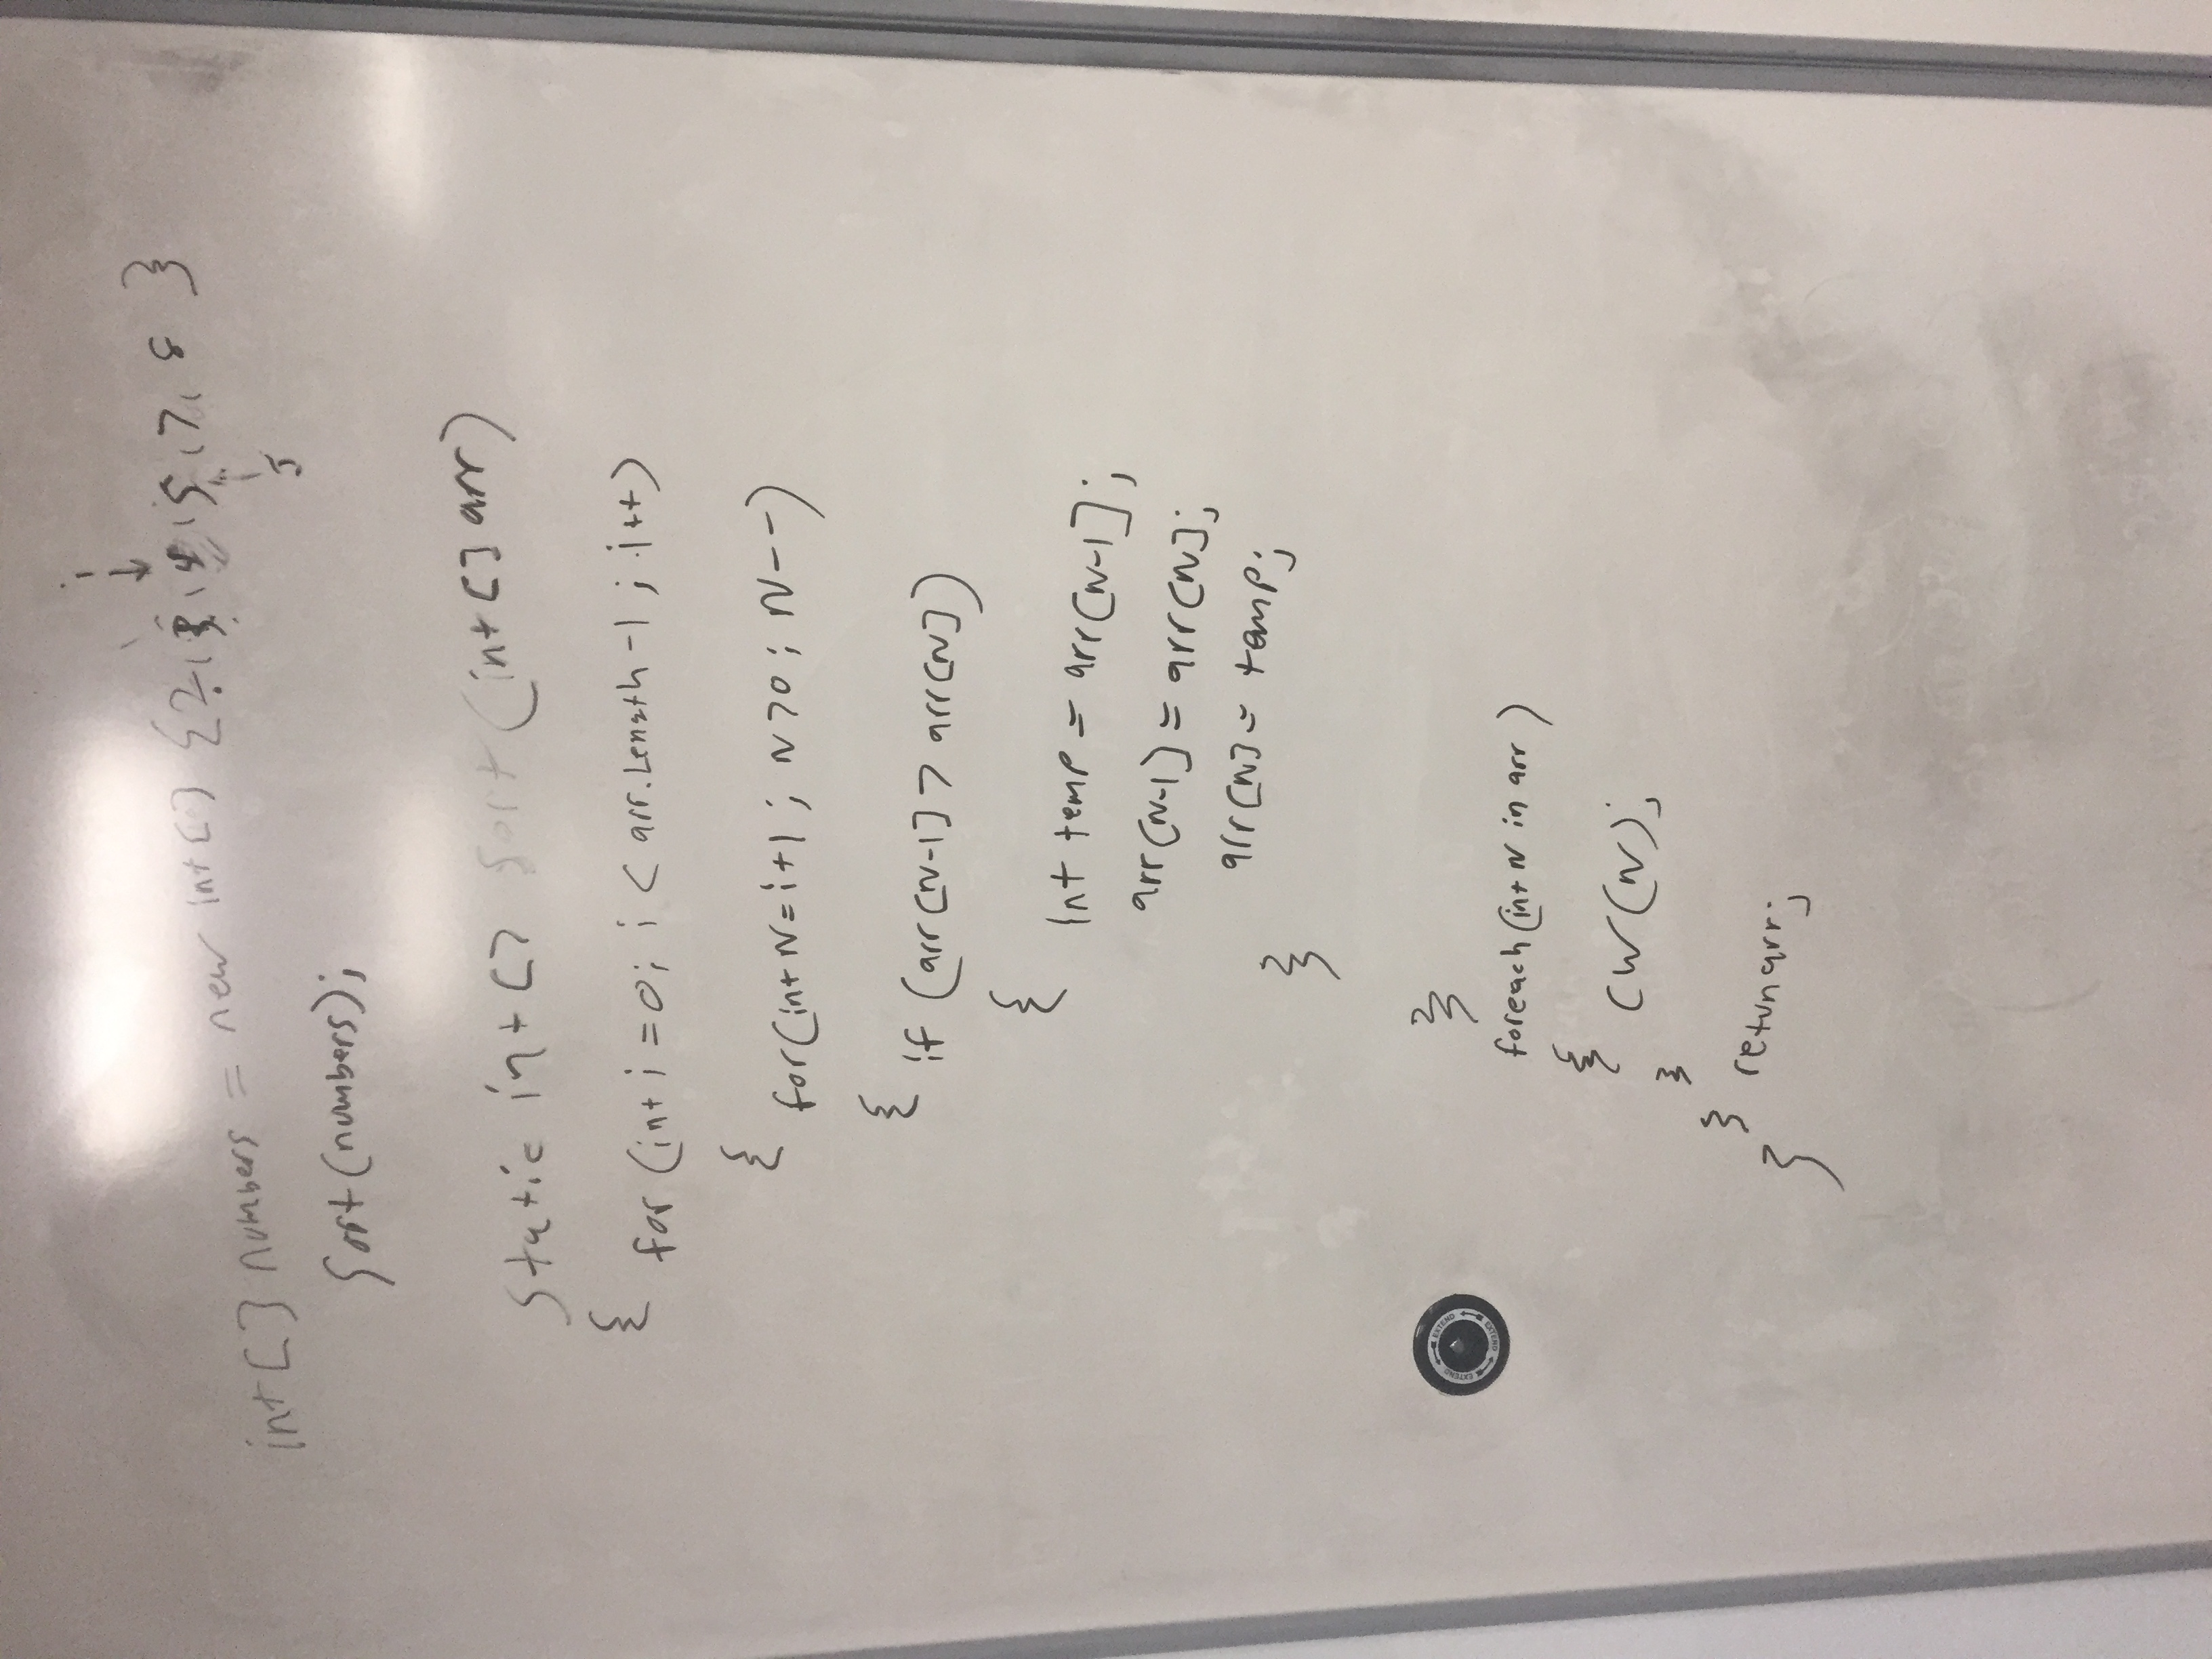 i
↓
int[] numbers = new int[] {2, 3, 4, 5, 7, 8 }
J
Sort(numbers);
static int[] Sort (int[] arr)
{
for (int i = 0; i < arr.Length -1 ; i++)
{
for(int N = i+1 ; N > 0 ; N--)
{
if (arr[N-1] > arr[N])
{
int temp = arr[N-1];
arr[N-1] = arr[N];
arr[N] = temp;
}
}
foreach (int N in arr )
{
CW(N);
}
} retun arr;
}
EXTEND EXTEND EXTEND EXTEND